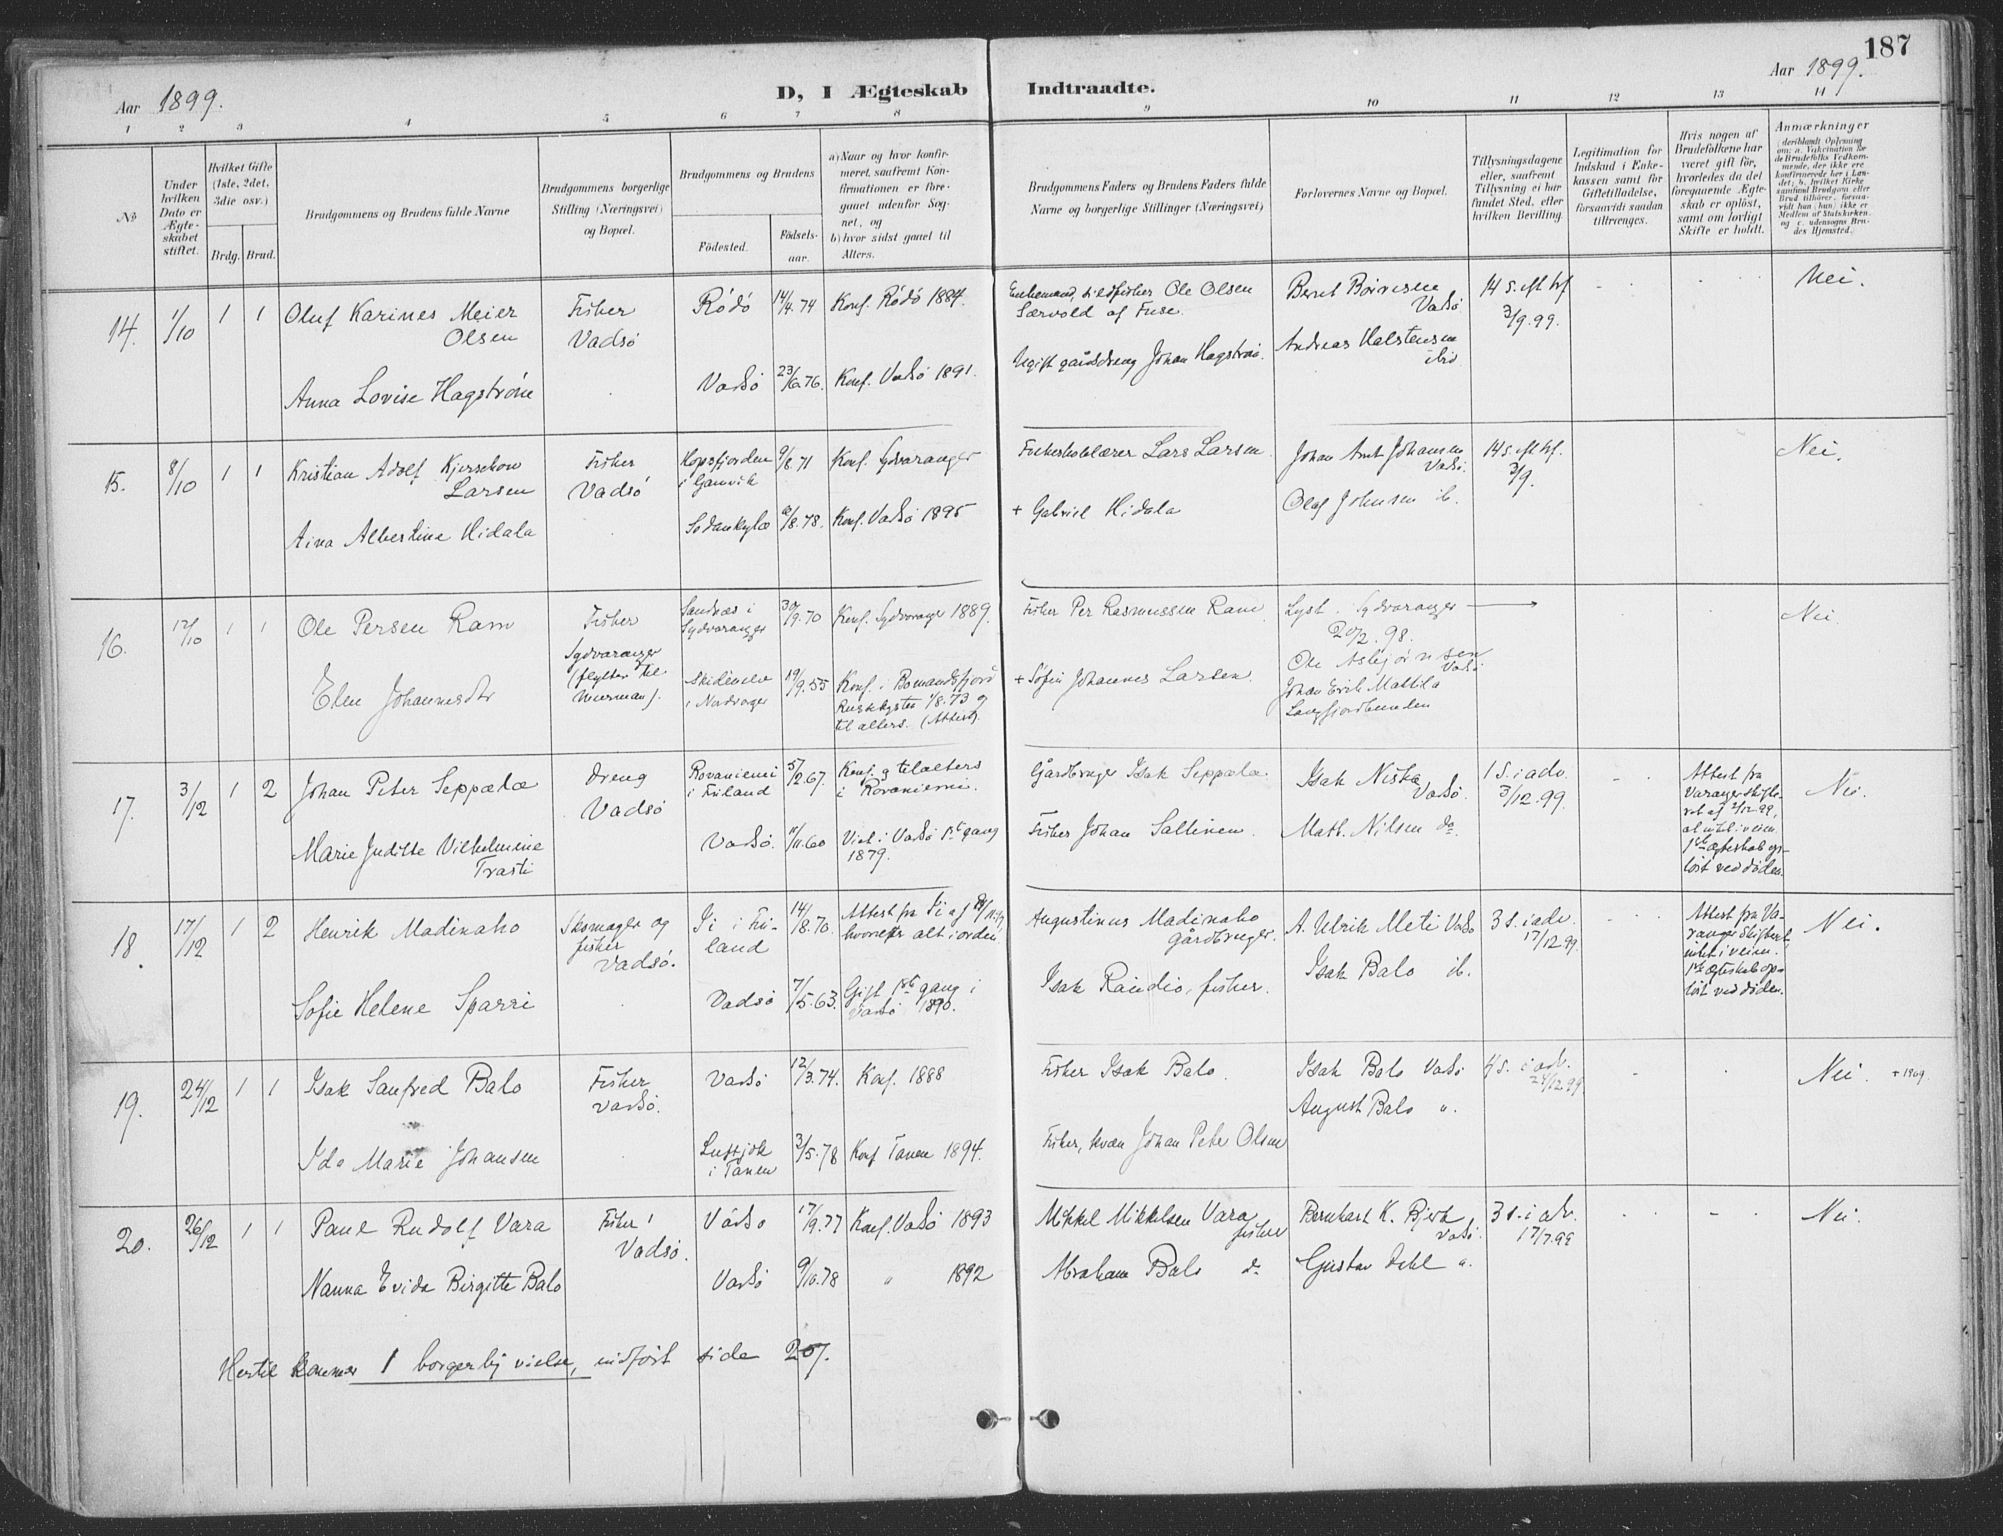 187
Aar 1899.
D, I Ægteskab Indtraadte.
Aar 1899.
1 2 3 4 5 6 7 8 9 10 11 12 13 14
No
Under hvilken Dato er Ægteskabet stiftet.
Hvilket Gifte (1ste, 2det, 3die osv.)
Brdg. Brud.
Brudgommens og Brudens fulde Navne
Brudgommens borgerlige Stilling (Næringsvei) og Bopæl.
Brudgommens og Brudens
Födested.
Födselsaar.
a) Naar og hvor konfirmeret, saafremt Konfirmationen er foregaaet udenfor Sognet, og
b) hvor sidst gaaet til Alters.
Brudgommens Faders og Brudens Faders fulde Navne og borgerlige Stillinger (Næringsvei)
Forlovernes Navne og Bopæl.
Tillysningsdagene eller, saafremt Tillysning ei har fundet Sted, efter hvilken Bevilling.
Legitimation for Indskud i Enkekassen samt for Giftetilladelse, forsaavidt saadan tiltrænges.
Hvis nogen af Brudefolkene har været gift för, hvorledes da det foregaaende Ægteskab er oplöst, samt om lovligt Skifte er holdt.
Anmærkninger
(deriblandt Oplysning om: a. Vakcination for de Brudefolks Vedkommende, der ikke ere konfirmerede her i Landet; b. hvilket Kirkesamfund Brudgom eller Brud tilhörer, forsaavidt han (hun) ikke er Medlem af Statskirken, og c. udensogns Brudes Hjemsted.
14. 1/10 1 1 Oluf Karines Meier Olsen
Fisker Vadsö
Rödö 14/4.74 Konf. Rödö 1884.
Enkemand, sildfisker Ole Olsen Særvold af Fuse.
Bernt Börresen Vadsö
14 s. eft trf 3/9.99.
Nei.
Anna Lovise Hagström
Vadsö 23/6 76. Konf. Vadsö 1891.
Ugift gårdsdreng Johan Hagström.
Andreas Halstensen ibid
15. 8/10 1 1 Kristian Adolf Kjerschow Larsen
Fisker Vadsö
Hopsfjorden i Gamvik 9/8 71 Konf. Sydvaranger
Fiskeskolelærer Lars Larsen.
Johan Arnt Johansen Vadsö.
14 s. eft trf. 3/9.
Nei.
Aina Albertine Hidala
Sodankylæ /8.78. Konf. Vadsö 1895
+ Gabriel Hidala
Olaf Johnsen ib.
16. 12/10 1 1 Ole Persen Ram
Fisker Sydvaranger (flytter til Murman).
Sandnæs i Sydvaranger 30/9.70 Konf. Sydvaranger 1889.
Fisker Per Rasmussen Ram
Lyst. Sydvaranger 20/2.98.
Ole Asbjörnsen Vadsö
Nei.
Elen Johannesdtr
Skidenelv i Nordvager 19/9.55 Konf. i Bomandsfjord Ruskkysten 1/8.73 og til alters. (Attest).
+ Söfin Johannes Larsen.
Johan Erik Mattila Langfjordbunden
17. 3/12 1 2 Johan Peter Seppælæ
Dreng Vadsö
Rovaniemi i Finland 5/2.67. Konf. og til alters i Rovaniemi.
Gårdbruger Isak Seppælæ.
Isak Niska Vadsö.
1 s. i adv. 3/12.99.
Attest fra Varanger skifteret af 2/12 99, at intet i veien. 1ste Ægteskab oplöst ved döden.
Nei.
Marie Juditte Vilhelmine Trasti
Vadsö. /11.60 Viet i Vadsö 1ste gang 1879.
Fisker Johan Saltinen.
Math. Nilsen do.
18. 17/12 1 2 Henrik Madinaho
Skomager og fisker Vadsö.
Ii i Finland 14/8.70. Attest fra Ii af hvorefter alt i orden
Augustinus Madinaho gårdbruger.
A. Ulrik Meti Vadsö
3 s. i adv. 17/12 99.
Attest fra Varanger Skifteret, intet i veien. 1ste Ægteskab oplöst ved döden.
Nei.
Sofie Helene Sparri
Vadsö 7/5 63. Gift 1ste gang i Vadsö 1890.
Isak Raudio, fisker.
Isak Balo ib.
19. 24/12 1 1 Isak Sanfred Balo
Fisker Vadsö.
Vadsö 12/3.74. Konf. 1888
Fisker Isak Balo.
Isak Balo Vadsö
4 s. i adv. 24/12 99.
Nei. + 1909.
Ida Marie Johansen
Luftjok i Tanen 3/5.78 Konf Tanen 1894.
Fisker, kvæn Johan Peter Olsen
August Balo ".
20. 26/12 1 1 Paul Rudolf Vara
Fisker Vadsö.
Vadsö 17/9.77 Konf. Vadsö 1893
Mikkel Mikkelsen Vara fisker
Bernhart K. Bjerk Vadsö.
3 s. i adv. 17/7.99
Nei.
Nanna Evida Birgitte Balo
Vadsö 9/10.78 " 1892
Abraham Balo do
Gustav Dahl ".
Hertil kommer 1 borgerlig vielse, indfört side 207.